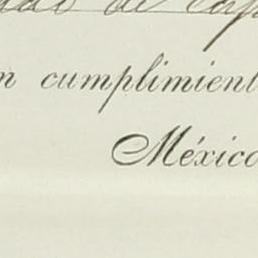 de
n cumplimient
México